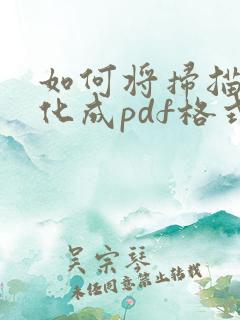 如何将扫描
化成pdf格式
吴宗琴
未经同意禁止转载